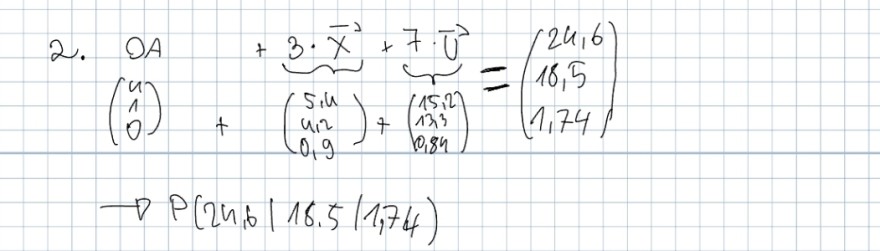 2. OA + 3 · X⃗ + 7 · U⃗ = (24,6
18,5
1,74)
(4
1
0) + (5,4
4,2
0,9) + (15,2
13,3
0,84)
→ P(24,6 | 18.5 | 1,74)